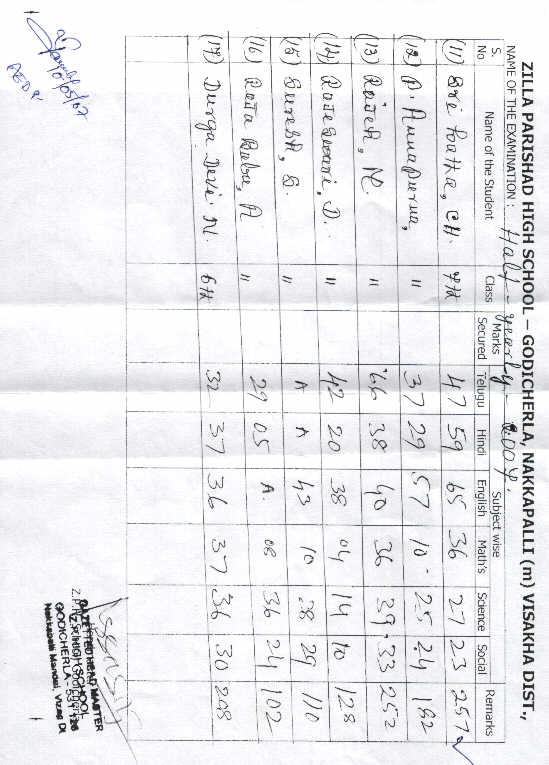 ZILLA PARISHAD HIGH SCHOOL – GODICHERLA, NAKKAPALLI (m) VISAKHA DIST.,
NAME OF THE EXAMINATION : Half - yearly -
S. No Name of the Student Class Marks Secured Subject wise Remarks
Telugu Hindi English Math's Science Social
(11) Sri Latha, CH. 7th 47 59 65 36 27 23 257
(12) P. Annapurna, " 37 29 57 10 - 25 24 182
(13) Rajesh, M. " 66 38 40 36 39 33 252
(14) Rajeswari, D. " 42 20 38 04 14 10 128
(15) Suresh, S. " A A 43 10 28 29 110
(16) Raja Babu, A " 29 05 A. 08 36 24 102
(17) Durga Devi N. 6th 32 37 36 37 36 30 208
GAZETTED HEAD MASTER
Z.P. HIGH SCHOOL
GODICHERLA - 531 126
Nakkapalli Mandal, Vizag Dt.